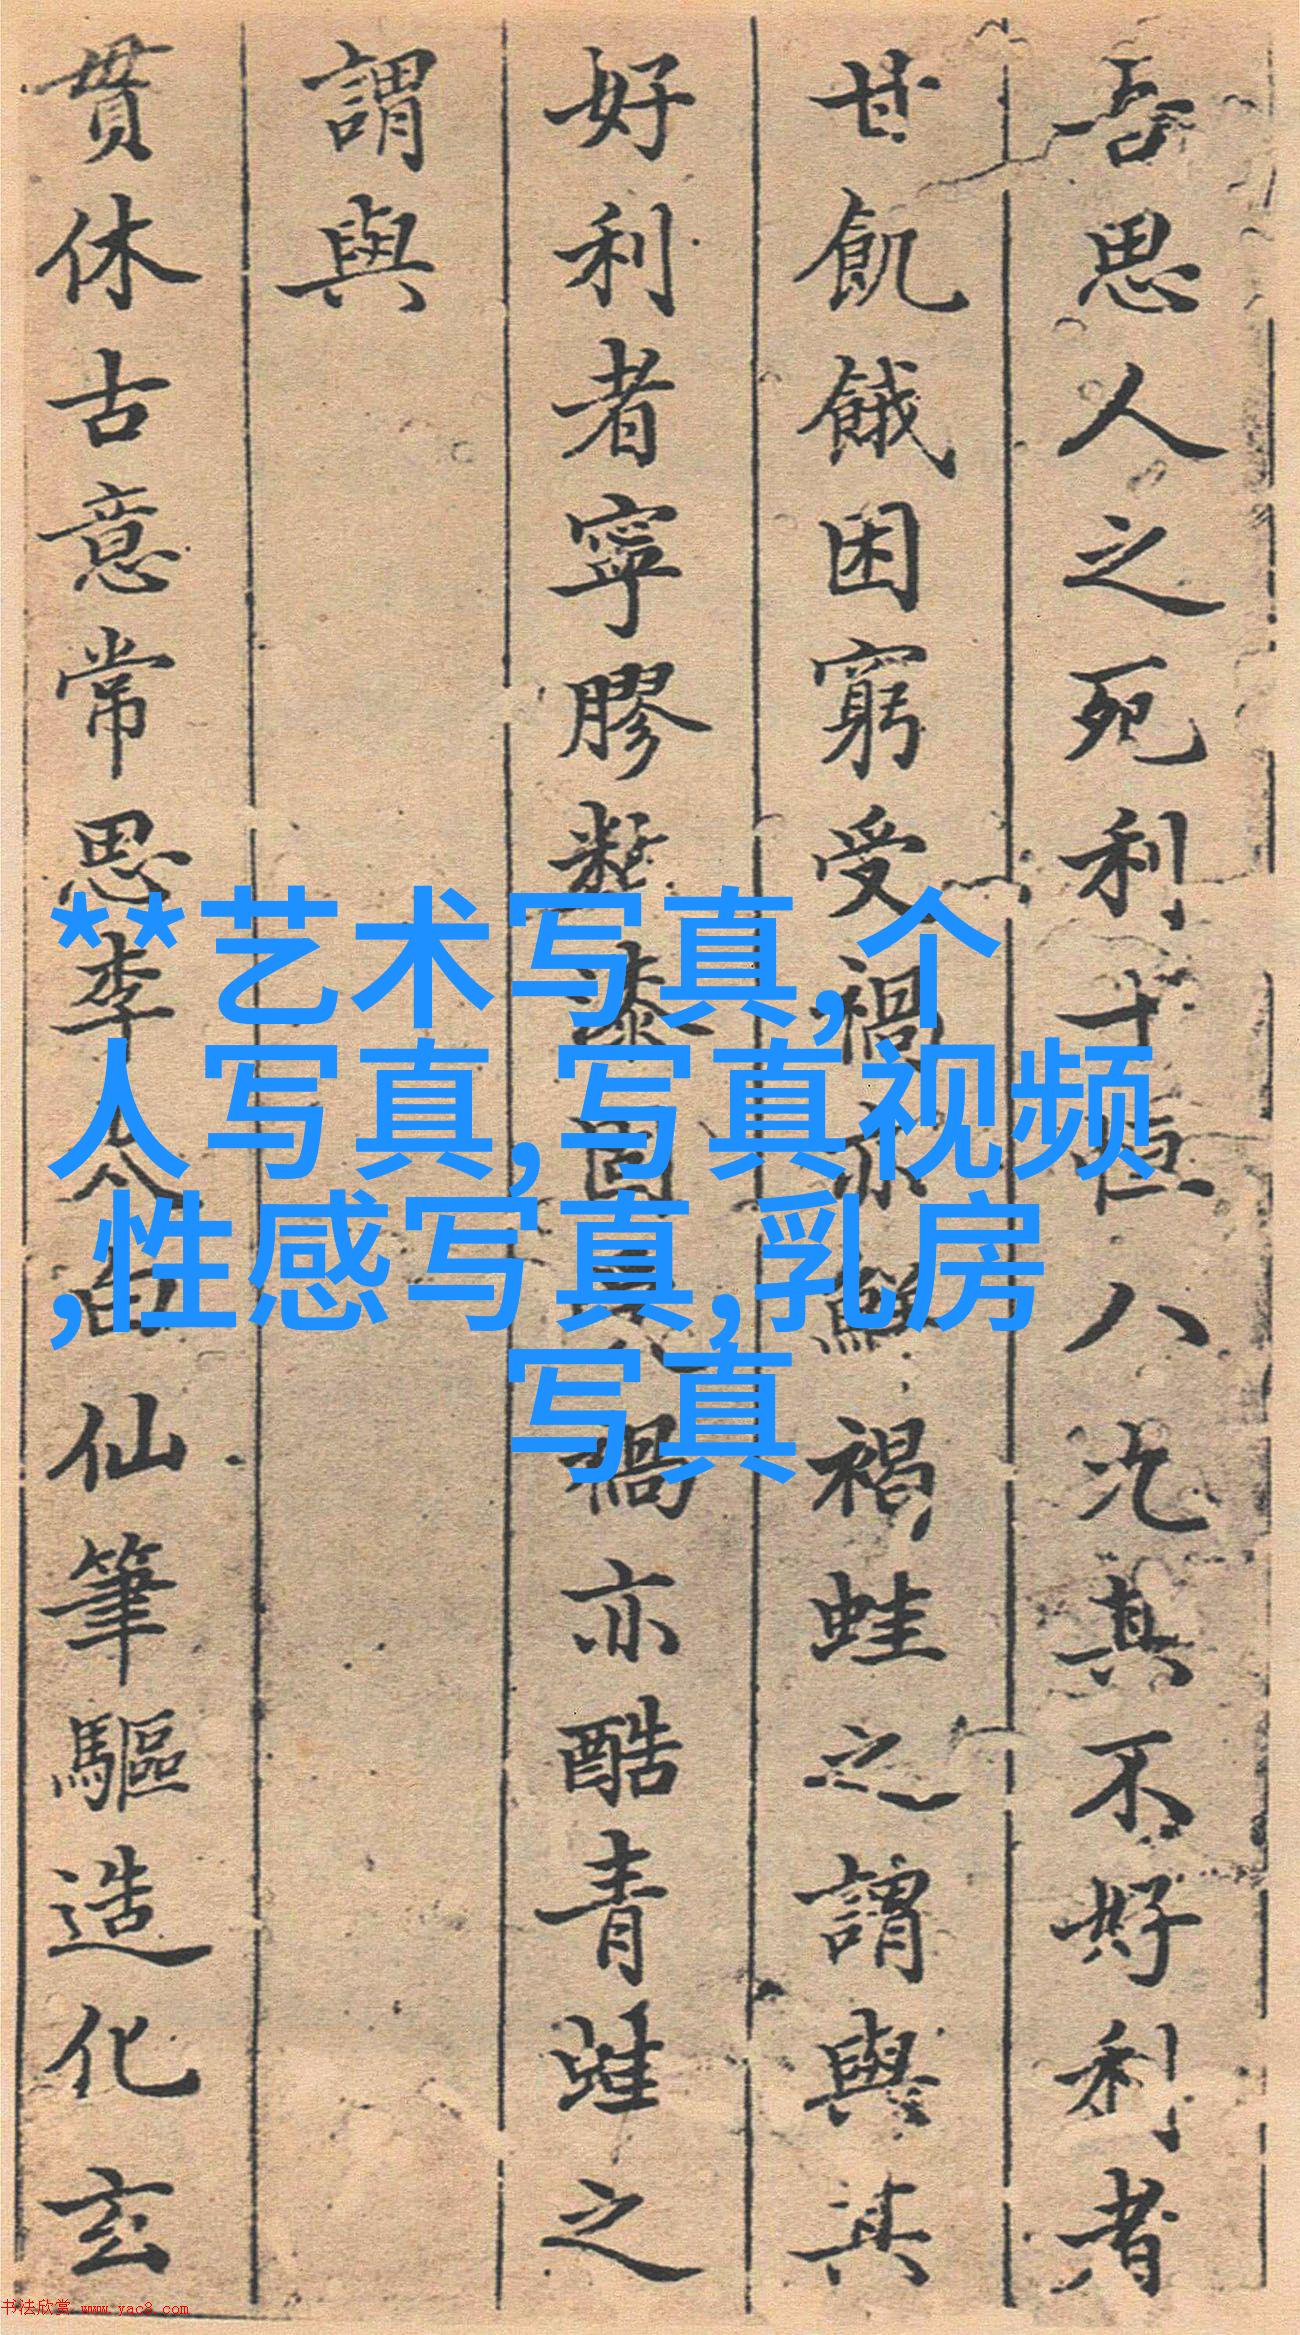 吾思人之死利十恒八九其不好利者
甘飢餓困窮受禍亦鮮禍蛙之謂與其
好利者寧膠黏漆固其禍亦酷青蛙之
謂與
貫休古意常思李太白仙筆驅造化玄
**艺术写真,个
人写真,写真视频
,性感写真,乳房
写真
书法欣赏 www.yac8.com